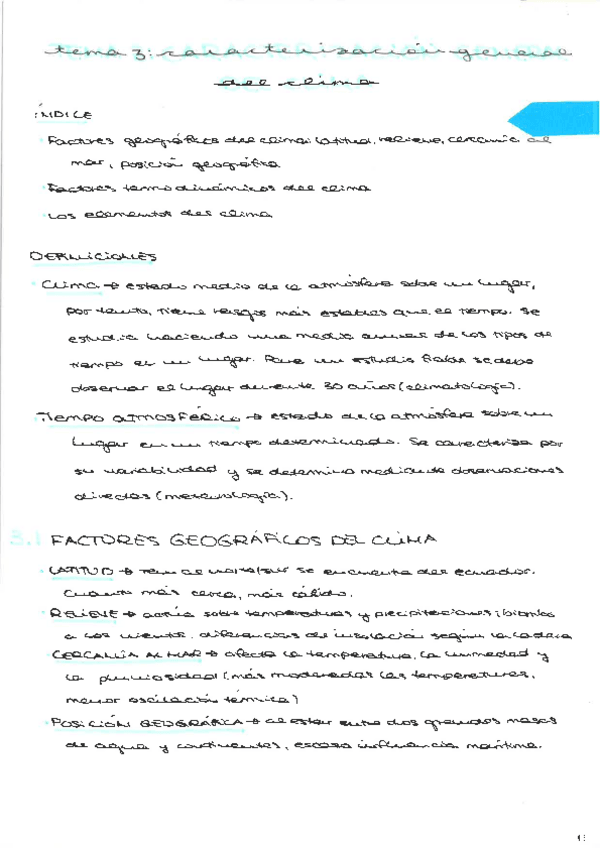 tema 3: caracterización general
del clima
ÍNDICE
· Factores geográficos del clima: latitud, relieve, cercanía al
mar, posición geográfica
· Factores termodinámicos del clima
· Los elementos del clima
DEFINICIONES
· CLIMA → estado medio de la atmósfera sobre un lugar,
por tanto, tiene rasgos más estables que el tiempo. Se
estudia haciendo una media anual de los tipos de
tiempo en un lugar. Para un estudio fiable se debe
observar el lugar durante 30 años (climatología).
· TIEMPO ATMOSFÉRICO → estado de la atmósfera sobre un
lugar en un tiempo determinado. Se caracteriza por
su variabilidad y se determina mediante observaciones
directas (meteorología).
3.1 FACTORES GEOGRÁFICOS DEL CLIMA
· LATITUD → se encuentra del ecuador.
Cuanto más cerca, más cálido.
· RELIEVE → actúa sobre temperaturas y precipitaciones;
a los vientos, diferencias de insolación según la ladera
· CERCANÍA AL MAR → afecta la temperatura, la humedad y
la pluviosidad (más moderadas las temperaturas,
menor oscilación térmica)
· POSICIÓN GEOGRÁFICA → al estar entre dos grandes masas
de agua y continentes, escasa influencia marítima.